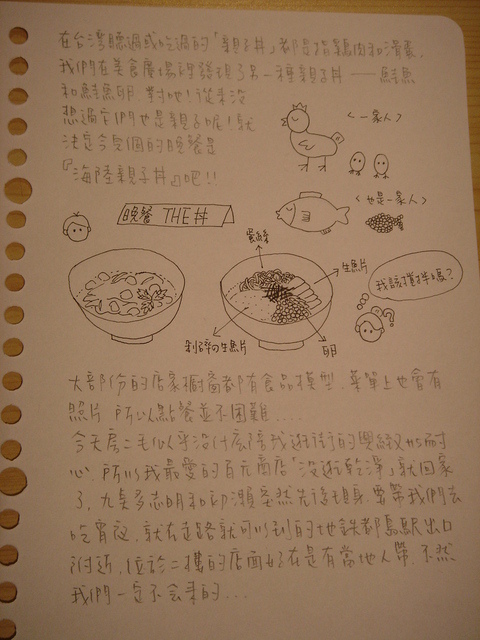 在台灣聽過或吃過的「親子丼」都是指雞肉和滑蛋,
我們在美食廣場裡發現了另一種親子丼——鮭魚
和鮭魚卵. 對吔!從來沒
想過它們也是親子呢!就
決定今晚的晚餐是
『海陸親子丼』吧!!
<一家人>
<也是一家人>
晚餐 THE丼
蛋絲
生魚片
我該攪拌嗎?
剁碎的生魚片
卵
大部份的店家櫥窗都有食品模型. 菜單上也會有
照片 所以點餐並不困難....
今天房二毛似乎沒什麼陪我逛街的興緻與耐
心 所以我最愛的百元商店"沒逛乾淨"就回家
了. 九具多志明和 突然先後現身. 要帶我們去
吃宵夜. 就在走路就可以到的地鉄都島駅出口
附近. 位於二樓的店面好在是有當地人帶. 不然
我們一定不會來的...